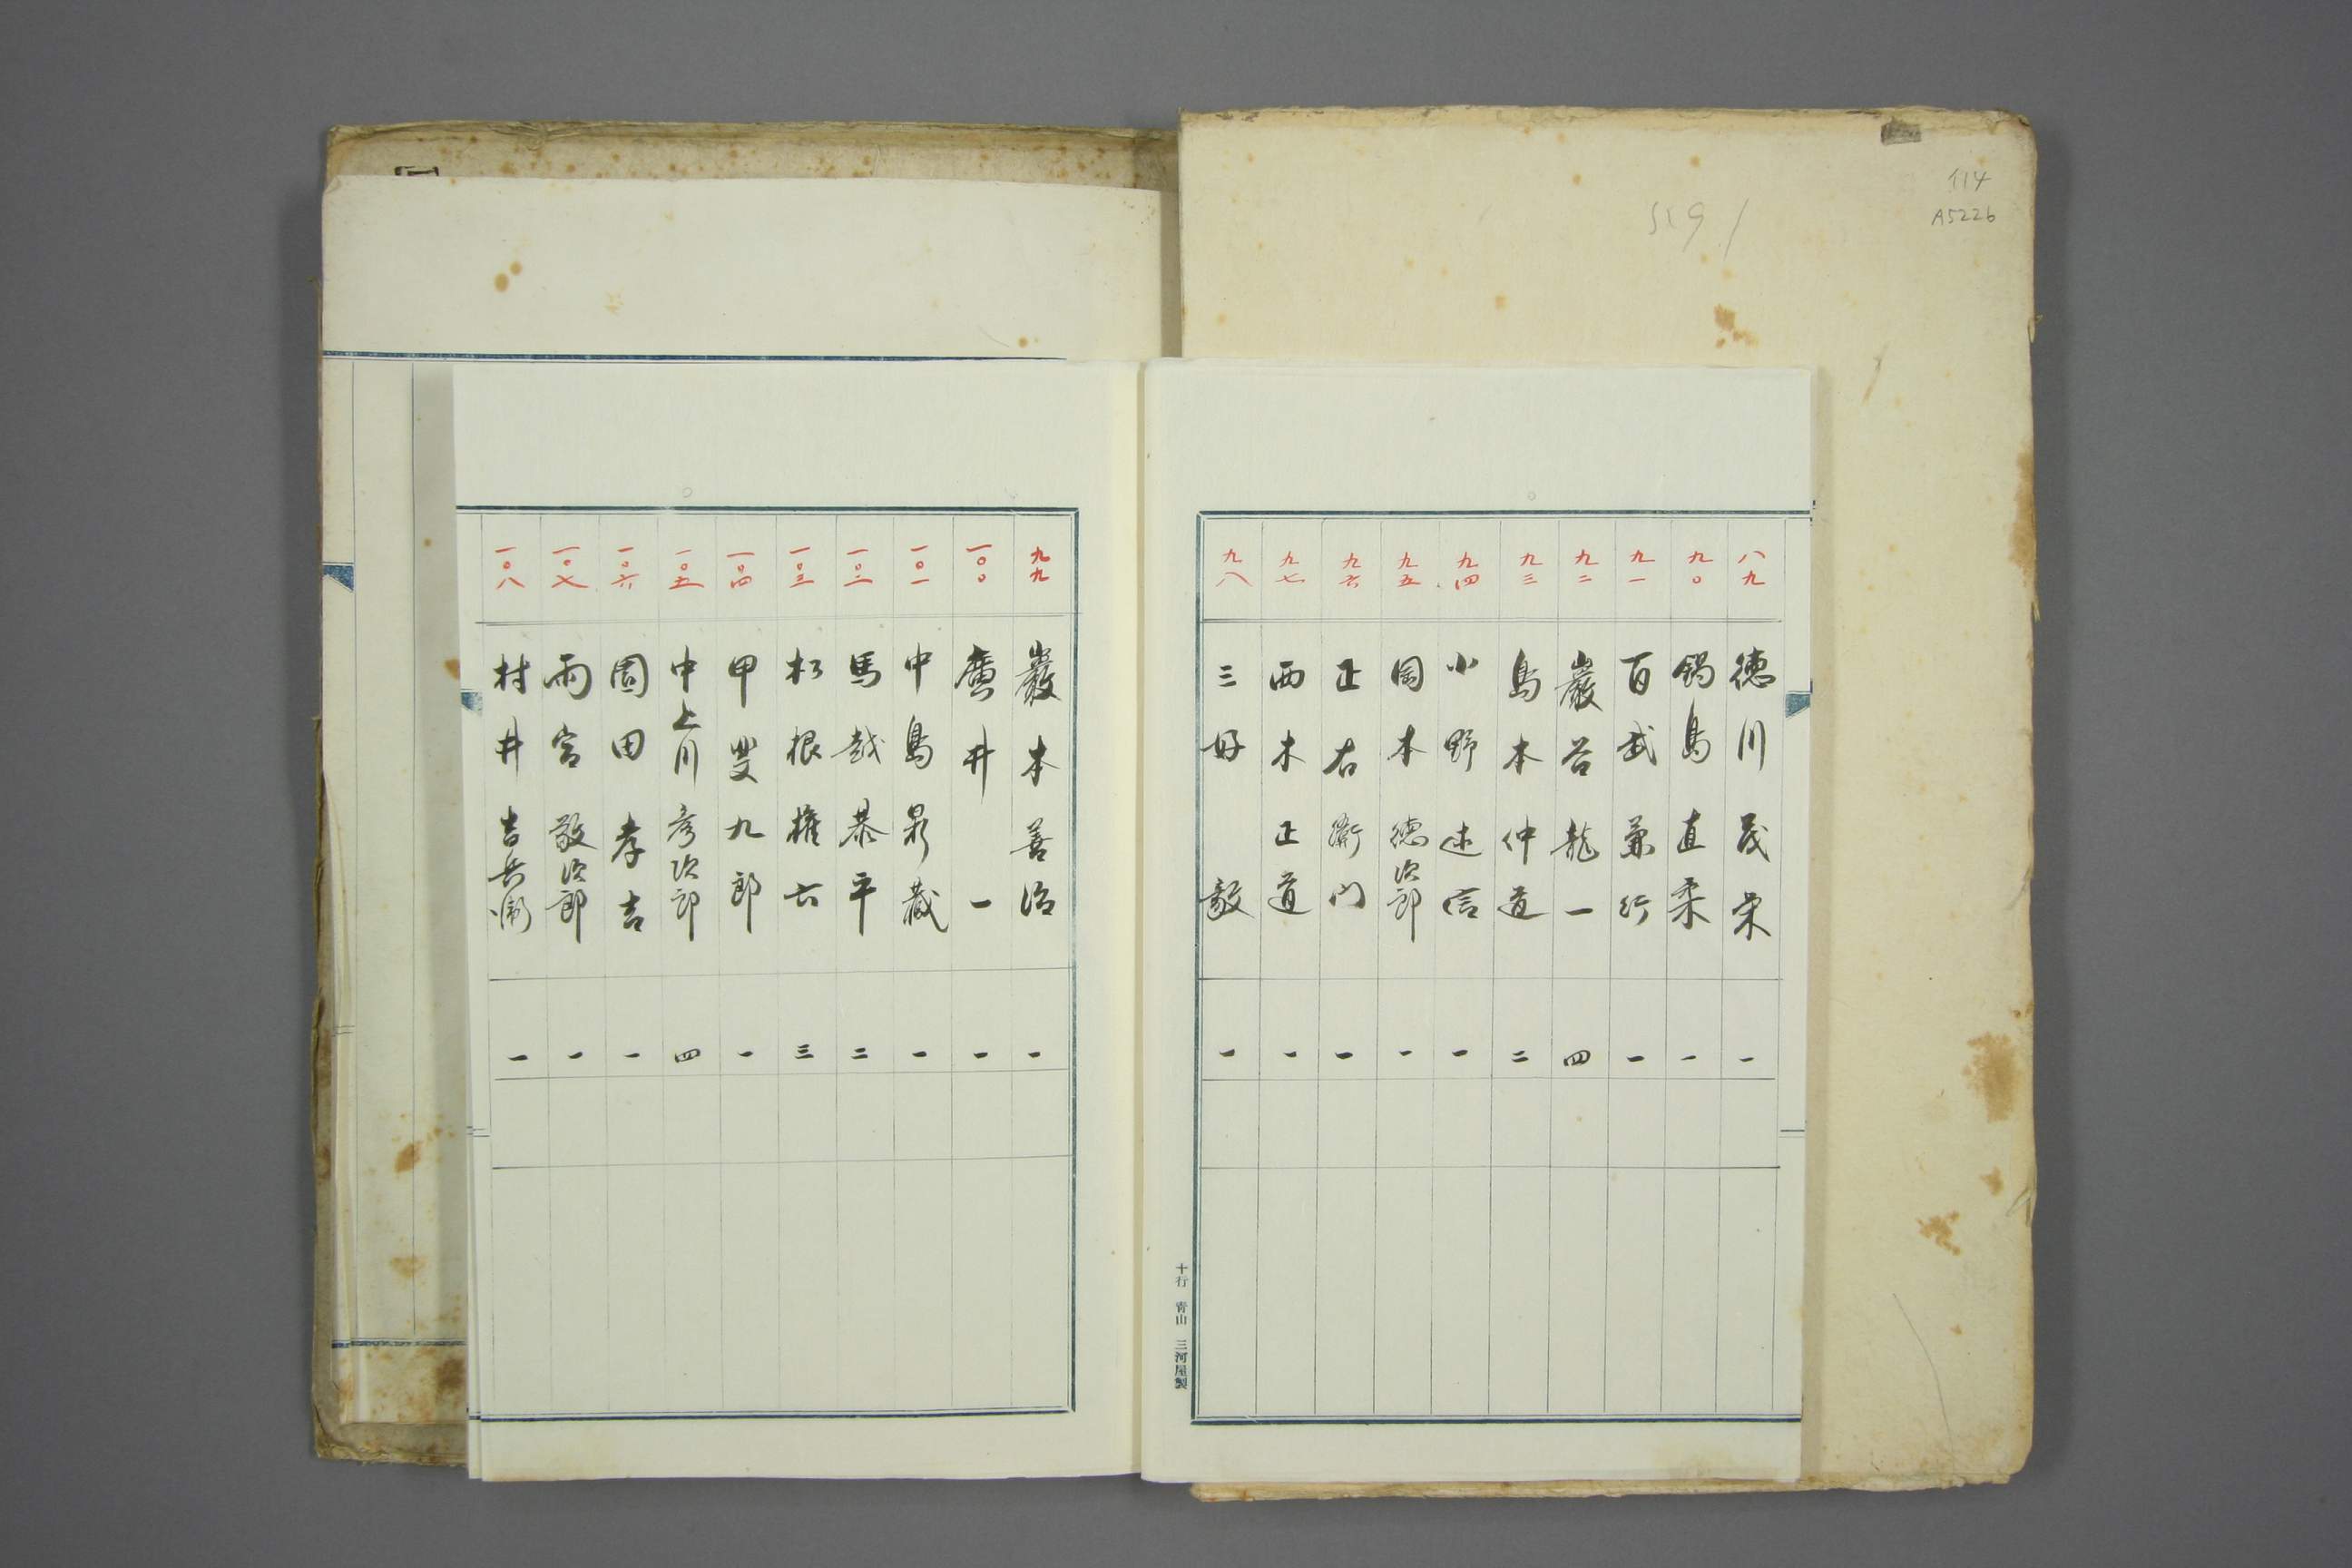 イ14
A5226
八九 徳川茂栄 一
九〇 鍋島直柔 一
九一 百武兼行 一
九二 巌谷龍一 四
九三 島本仲道 二
九四 小野述信 一
九五 岡本徳次郎 一
九六 正右衛門 一
九七 西木正道 一
九八 三好毅 一
十行 青山 三河屋製
九九 巌本善治 一
一〇〇 廣井一 一
一〇一 中島泉蔵 一
一〇二 馬越恭平 二
一〇三 松根権六 三
一〇四 甲斐九郎 一
一〇五 中上川彦次郎 四
一〇六 園田孝吉 一
一〇七 雨宮敬次郎 一
一〇八 村井吉兵衛 一